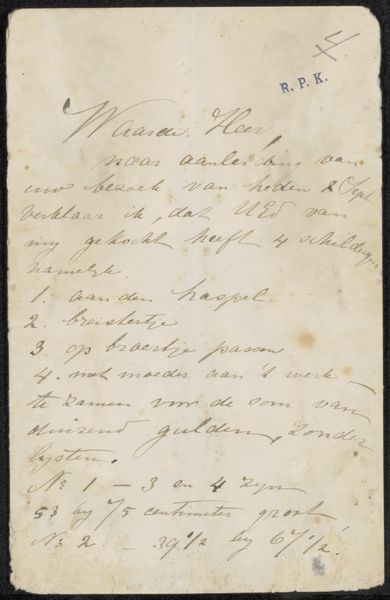 4
R. P. K.
Waarde Heer,
naar aanleiding van
uw bezoek van heden 2 Sept
verklaar ik, dat UEd van
my gekocht heeft 4 schilderyen
namelyk
1. aan den haspel
2. breistertje
3. op broertje passen
4. met moeder aan 't werk –
te zamen voor de som van
duizend gulden, zonder
lysten.
No 1 – 3 en 4 zyn
53 by 75 centimeter groot
No 2 – 39 1/2 by 67 1/2